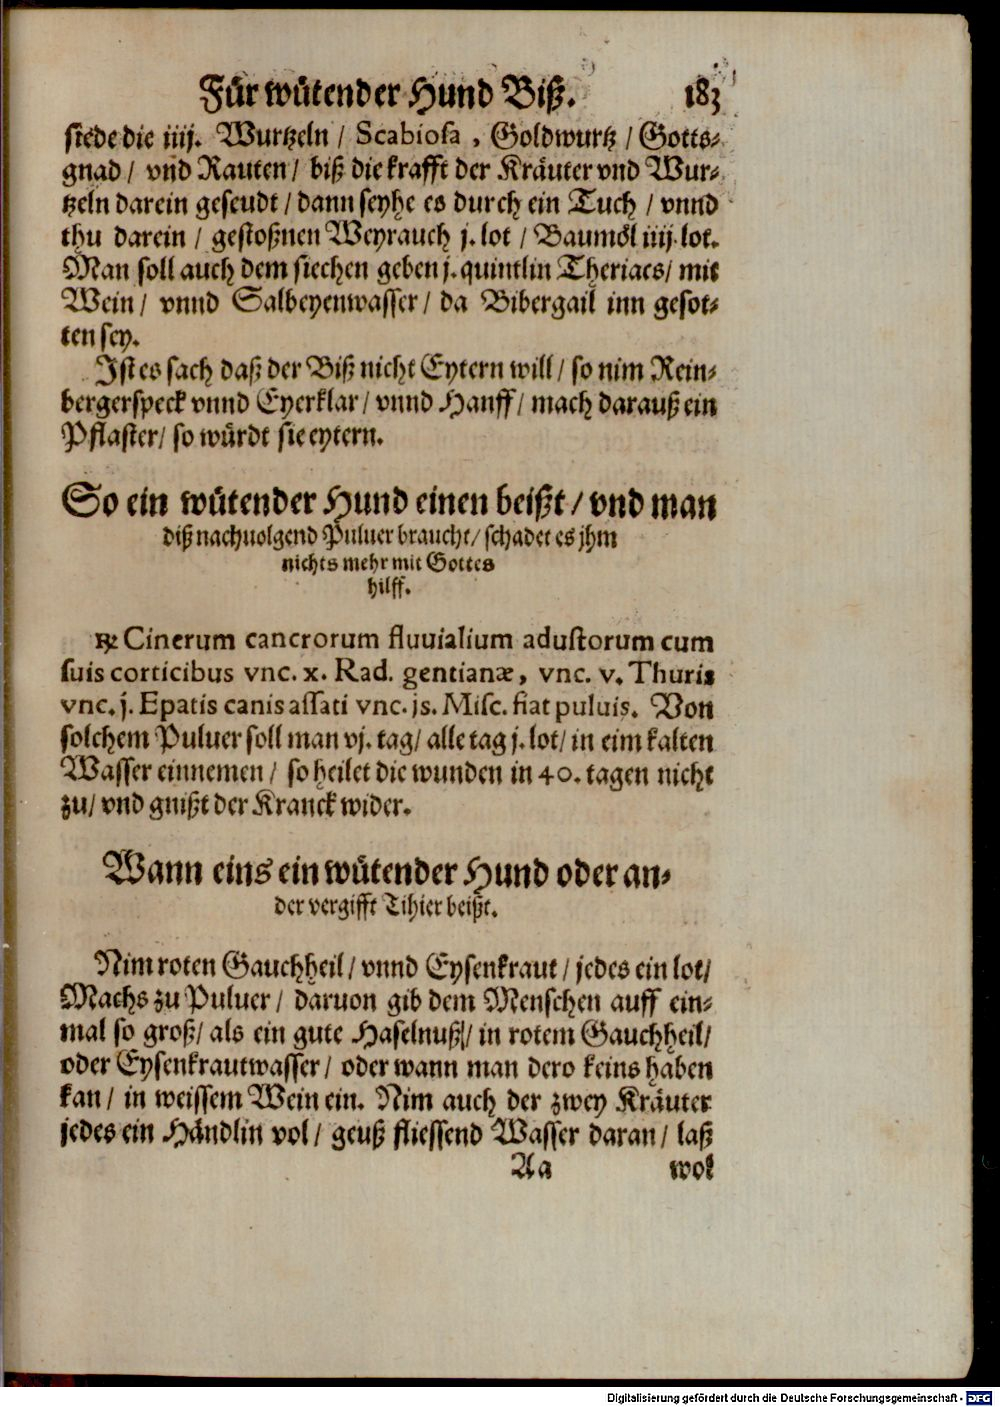 Für wütender Hund Biß. 183
siede die iiij. Wurtzeln / Scabiosa , Goldwurtz / Gotts-
gnad / vnd Rauten / biß die krafft der Kräuter vnd Wur-
tzeln darein geseudt / dann seyhe es durch ein Tuch / vnnd
thu darein / gestoßnen Weyrauch j. lot / Baumöl iiij. lot.
Man soll auch dem siechen geben j. quintlin Theriacs / mit
Wein / vnnd Salbeyenwasser / da Bibergail inn gesot-
ten sey.
Ist es sach daß der Biß nicht Eytern will / so nim Rein-
bergerspeck vnnd Eyerklar / vnnd Hanff / mach darauß ein
Pflaster / so würdt sie eytern.
So ein wütender Hund einen beißt / vnd man
diß nachuolgend Puluer braucht / schadet es jhm
nichts mehr mit Gottes
hilff.
℞ Cinerum cancrorum fluuialium adustorum cum
suis corticibus vnc. x. Rad. gentianæ, vnc. v. Thuris
vnc. j. Epatis canis assati vnc. js. Misc. fiat puluis. Von
solchem Puluer soll man vj. tag / alle tag j. lot / in eim kalten
Wasser einnemen / so heilet die wunden in 40. tagen nicht
zu / vnd gnißt der Kranck wider.
Wann eins ein wütender Hund oder an-
der vergifft Tihier beißt.
Nim roten Gauchheil / vnnd Eysenkraut / jedes ein lot /
Machs zu Puluer / daruon gib dem Menschen auff ein-
mal so groß / als ein gute Haselnuß / in rotem Gauchheil /
oder Eysenkrautwasser / oder wann man dero keins haben
kan / in weissem Wein ein. Nim auch der zwey Kräuter
jedes ein Händlin vol / geuß fliessend Wasser daran / laß
Aa wol
Digitalisierung gefördert durch die Deutsche Forschungsgemeinschaft - DFG